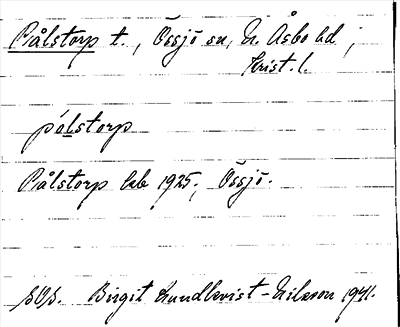 Pålstorp t., Össjö sn, N. Åsbo hd,
Krist. l.
pålstorp
Pålstorp lek 1925, Össjö.
SOS. Birgit Lundkvist-Nilsson 1941.